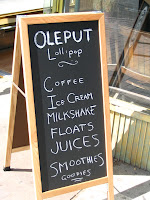 OLEPUT
Lollipop
COFFEE
ICE CREAM
MILKSHAKE
FLOATS
JUICES
SMOOTHIES
GOODIES